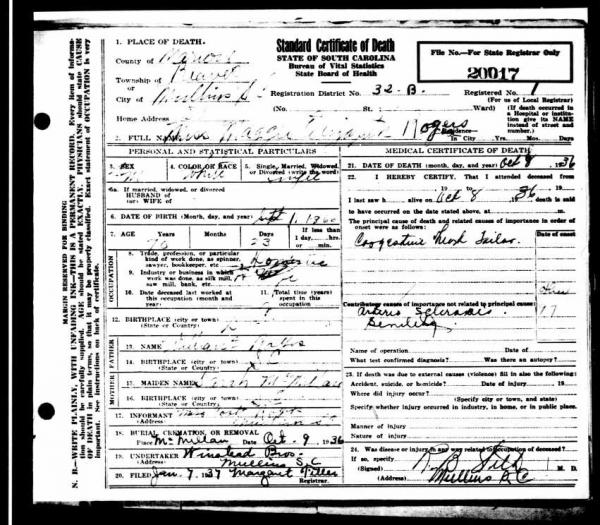 1. PLACE OF DEATH.
County of Marion
Township of
City of Mullins S.C.
Standard Certificate of Death
STATE OF SOUTH CAROLINA
Bureau of Vital Statistics
State Board of Health
File No.—For State Registrar Only
20017
Registration District No. 32-B.
Registered No. 1
(For use of Local Registrar)
(No. St.; Ward)
(If death occurred in a Hospital or institution give its NAME instead of street and number.)
Home Address
2. FULL NAME Maggie Elizabeth Rogers
Residence In City Yrs. Mos. Days
PERSONAL AND STATISTICAL PARTICULARS
3. SEX
4. COLOR OR RACE White
5. Single, Married, Widowed, or Divorced (write the word) Single
6a. If married, widowed, or divorced
HUSBAND of
(or) WIFE of
6. DATE OF BIRTH (Month, day, and year) Sept 1, 18
7. AGE Years 70 Months Days 23 If less than 1 day, hrs. or min.
OCCUPATION
8. Trade, profession, or particular kind of work done, as spinner, sawyer, bookkeeper, etc. Domestic
9. Industry or business in which work was done, as silk mill, saw mill, bank, etc.
10. Date deceased last worked at this occupation (month and year)
11. Total time (years) spent in this occupation
12. BIRTHPLACE (city or town)
(State or Country)
FATHER
13. NAME
14. BIRTHPLACE (city or town)
(State or Country) S.C.
MOTHER
15. MAIDEN NAME Sarah McMillan
16. BIRTHPLACE (city or town)
(State or Country)
17. INFORMANT
(Address)
18. BURIAL, CREMATION, OR REMOVAL
Place McMillan Date Oct. 9, 1936
19. UNDERTAKER Winstead Bros.
(Address) Mullins S.C
20. FILED Jan. 7, 37 Margaret Tiller
Registrar.
MEDICAL CERTIFICATE OF DEATH
21. DATE OF DEATH (month, day, and year) Oct 8, 36
22. I HEREBY CERTIFY, That I attended deceased from
19 to 19
I last saw h alive on Oct 8 36 19 death is said
to have occurred on the date stated above, at m.
The principal cause of death and related causes of importance in order of onset were as follows:
Date of onset
Congestive Heart Failur
Contributory causes of importance not related to principal cause:
Arterio Sclerosis
Senility
Name of operation Date of
What test confirmed diagnosis? Was there an autopsy?
23. If death was due to external causes (violence) fill in also the following:
Accident, suicide, or homicide? Date of injury 19
Where did injury occur?
(Specify city or town, and state)
Specify whether injury occurred in industry, in home, or in public place.
Manner of injury
Nature of injury
24. Was disease or injury in any way related to occupation of deceased?
If so, specify
(Signed) M. D.
(Address) Mullins S.C
MARGIN RESERVED FOR BINDING
N. B.—WRITE PLAINLY, WITH UNFADING INK—THIS IS A PERMANENT RECORD. Every item of information should be carefully supplied. AGE should be stated EXACTLY. PHYSICIANS should state CAUSE OF DEATH in plain terms, so that it may be properly classified. Exact statement of OCCUPATION is very important. See instructions on back of certificate.